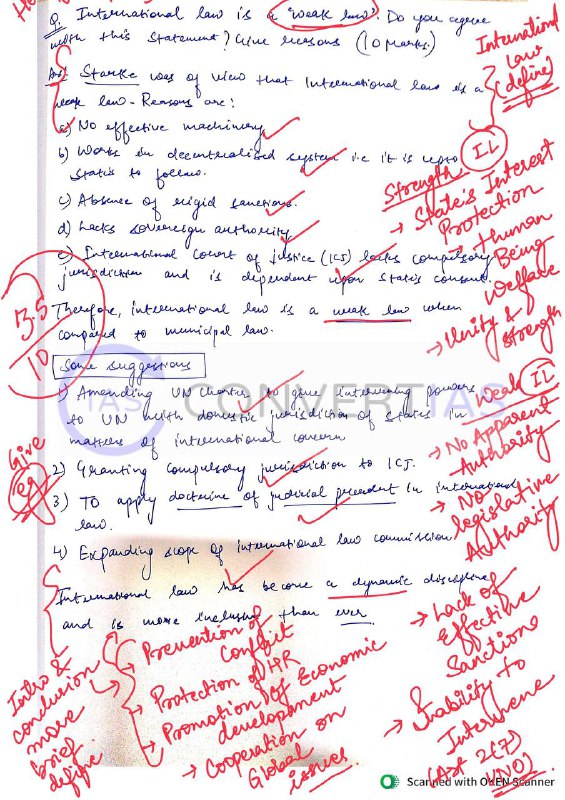 Q. International law is a "weak law". Do you agree
with this statement? Give reasons (10 Marks.)
International
Law
(define)
Ans. Starke was of view that International law is a
weak law. Reasons are:
a) No effective machinery
b) Works in decentralised system i.e it is upto
states to follow.
c) Absence of rigid sanctions.
d) Lacks sovereign authority
e) International Court of justice (ICJ) lacks compulsory
jurisdiction and is dependent upon state's consent.
Strength I.L
→ State's Interest
Protection
→ Human
Being
Welfare
→ Unity &
Strength
Therefore, international law is a weak law when
compared to municipal law.
10
Some suggestions
1) Amending UN Charter to give intervening powers
to UN with domestic jurisdiction of states in
matters of international concern
2) Granting compulsory jurisdiction to ICJ.
3) To apply doctrine of judicial precedent in international
law.
4) Expanding scope of international law commission
IAS CONVERTIAS
Give
eg
Weak IL
→ No Apparent
Authority
→ No
legislative
Authority
→ Lack of
Effective
Sanctions
&
→ Inability to
Intervene
(Art 2(7)
UNO)
International law has become a dynamic discipline
and is more inclusive than ever.
→ Prevention of
Conflict
→ Protection of HR
→ Promotion of Economic
development
→ Cooperation on
Global
issues.
Intro &
conclusion
more
brief
define
Scanned with OKEN Scanner